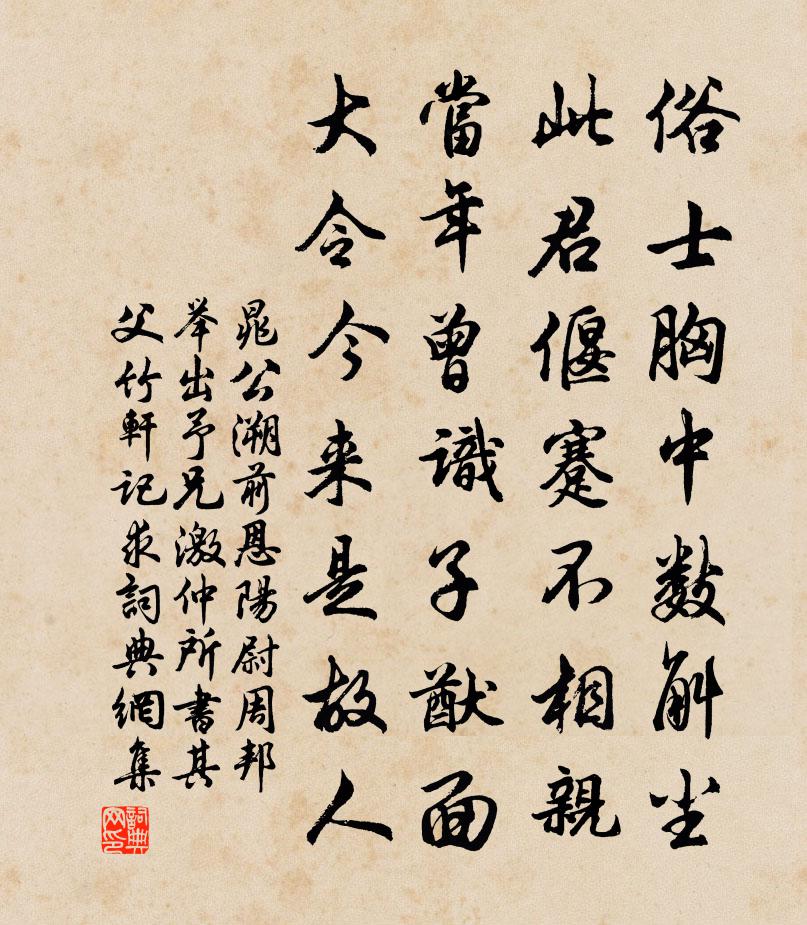 俗士胸中數斛尘
此君偃蹇不相親
當年曾識子猷面
大令今来是故人
晁公溯前恩陽尉周邦
举出予兄激仲所書其
父竹軒記求詞典網集
詞典网印